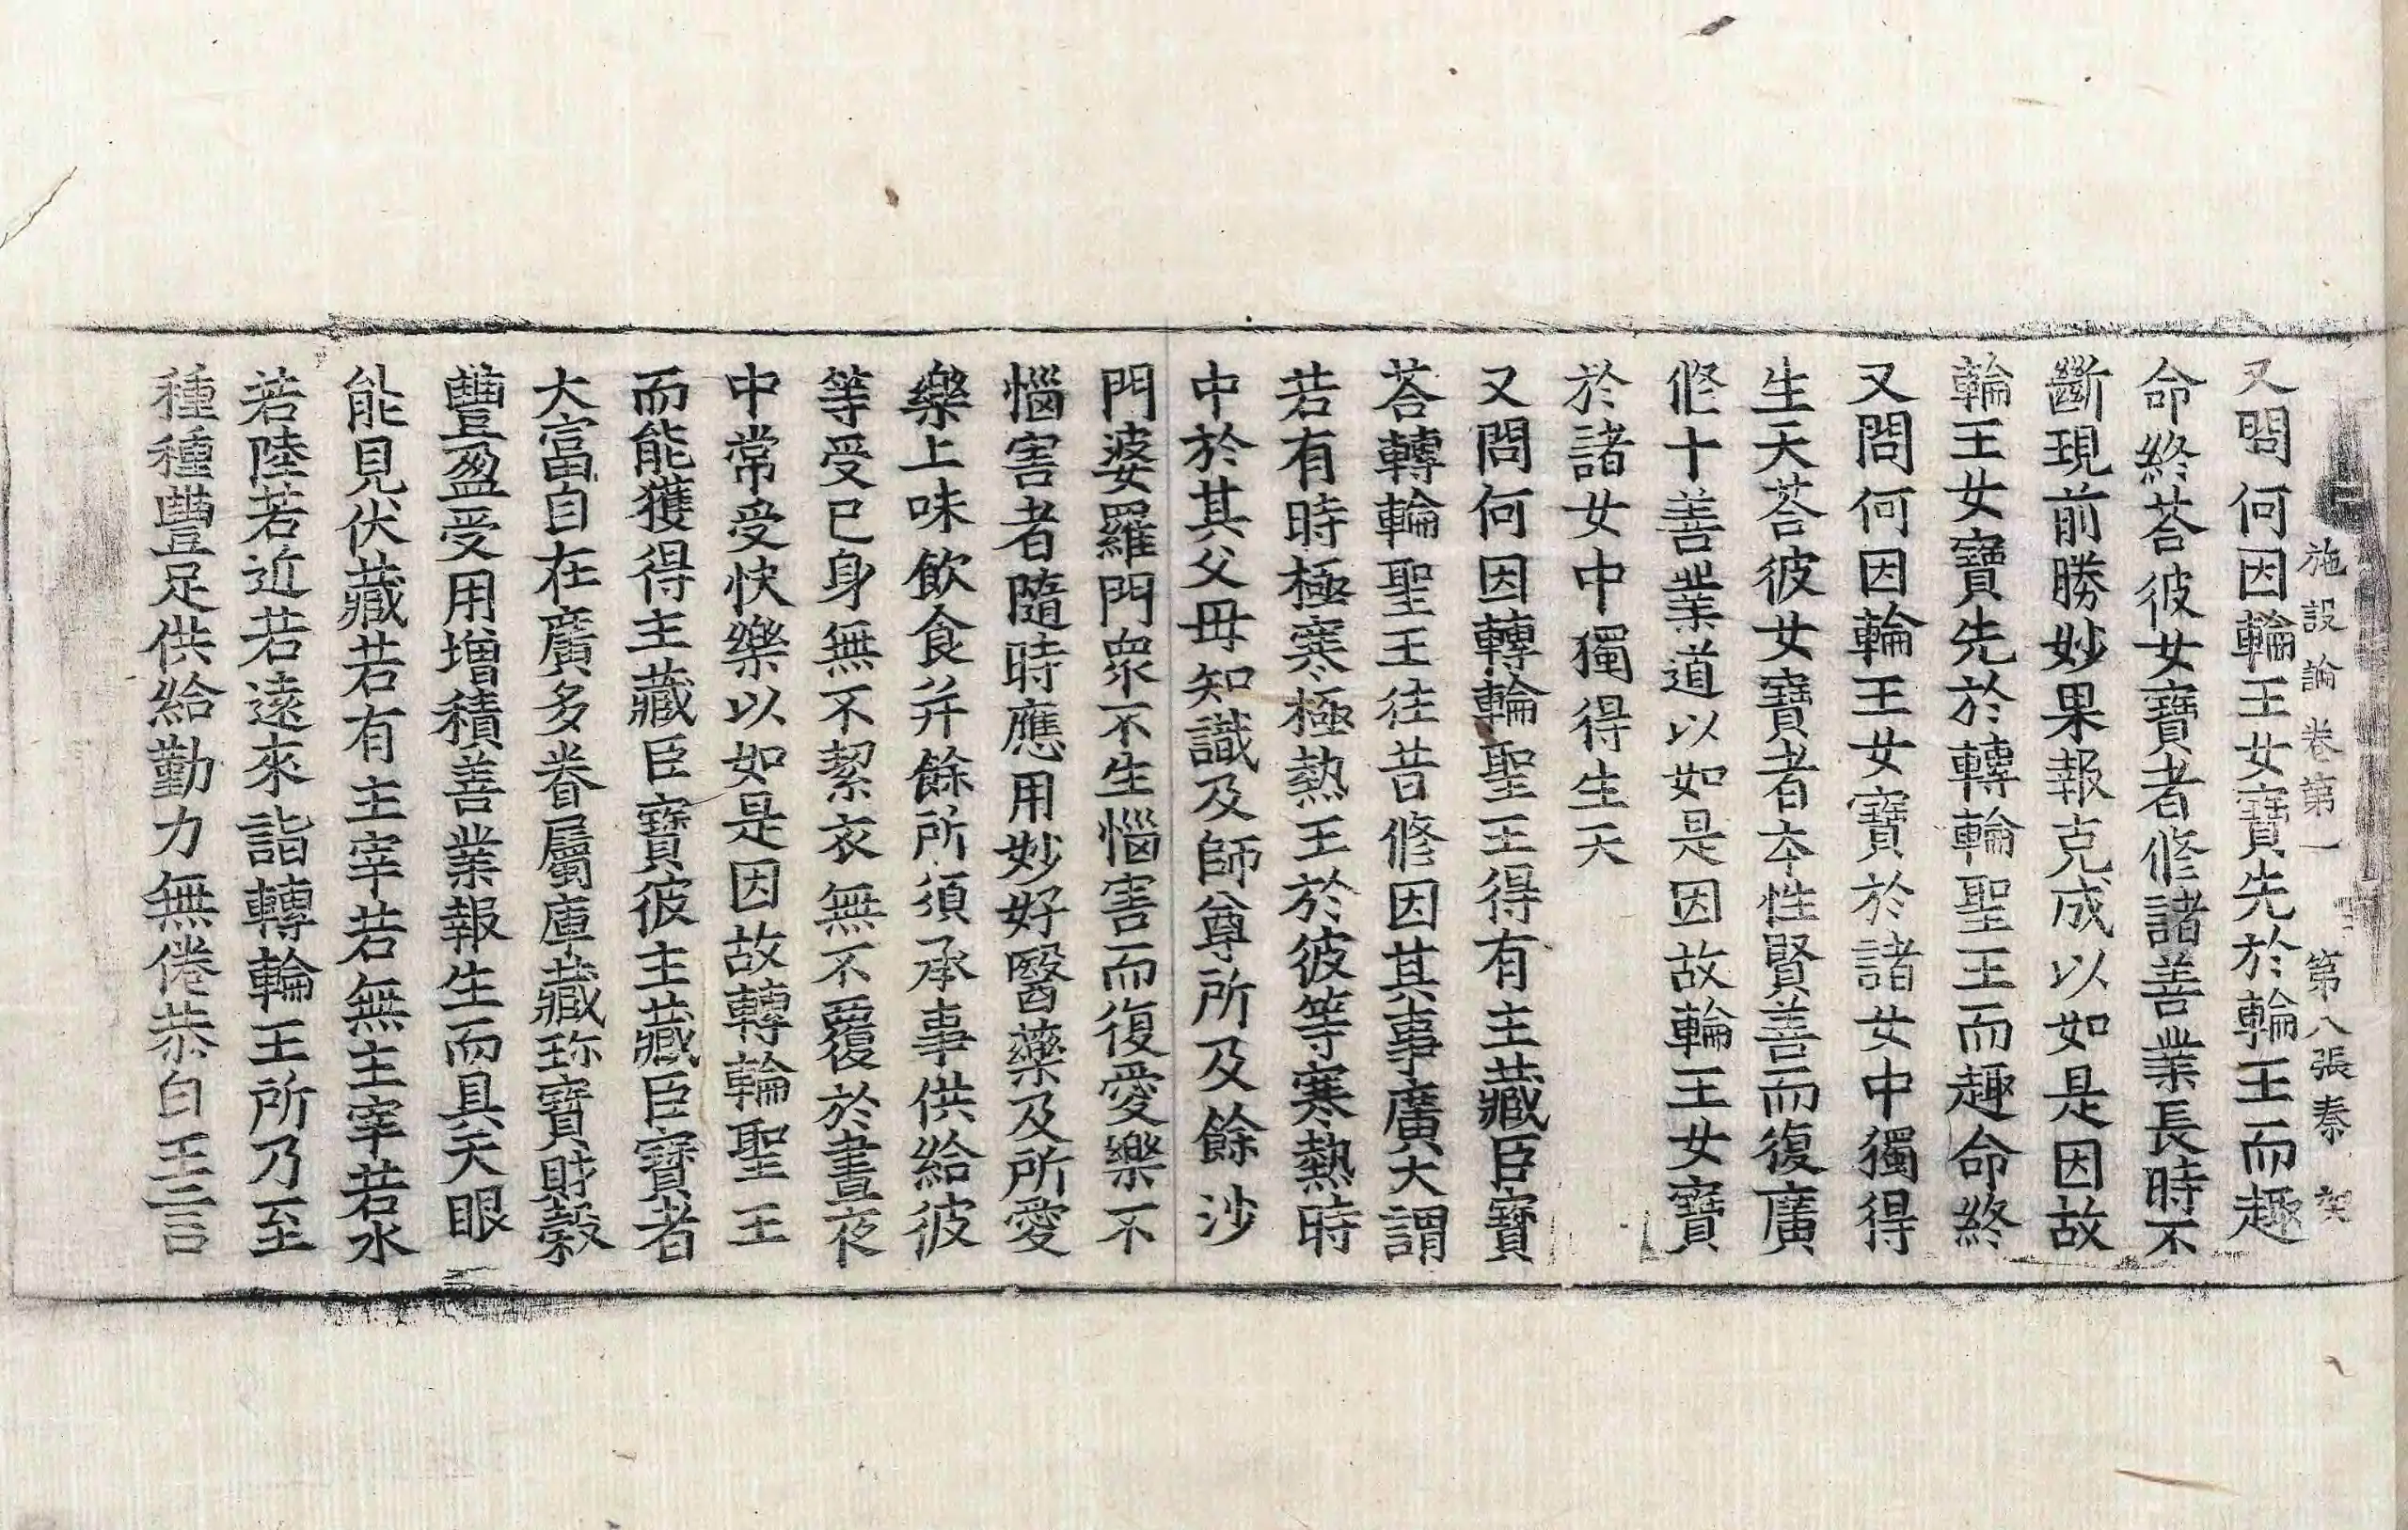 施設論卷第一 第八張 秦 契
又問何因輪王女寶先於輪王而趣
命終荅彼女寶者修諸善業長時不
斷現前勝妙果報克成以如是因故
輪王女寶先於轉輪聖王而趣命終
又問何因輪王女寶於諸女中獨得
生天荅彼女寶者本性賢善而復廣
修十善業道以如是因故輪王女寶
於諸女中獨得生天
又問何因轉輪聖王得有主藏臣寶
荅轉輪聖王往昔修因其事廣大謂
若有時極寒極熱王於彼等寒熱時
中於其父母知識及師尊所及餘沙
門婆羅門衆不生惱害而復愛樂不
惱害者隨時應用妙好醫藥及所愛
樂上味飲食并餘所須承事供給彼
等受已身無不絜衣無不覆於晝夜
中常受快樂以如是因故轉輪聖王
而能獲得主藏臣寶彼主藏臣寶者
大富自在廣多眷屬庫藏珎寶財穀
豐盈受用增積善業報生而具天眼
能見伏藏若有主宰若無主宰若水
若陸若近若遠來詣轉輪王所乃至
種種豐足供給勤力無倦恭白王言